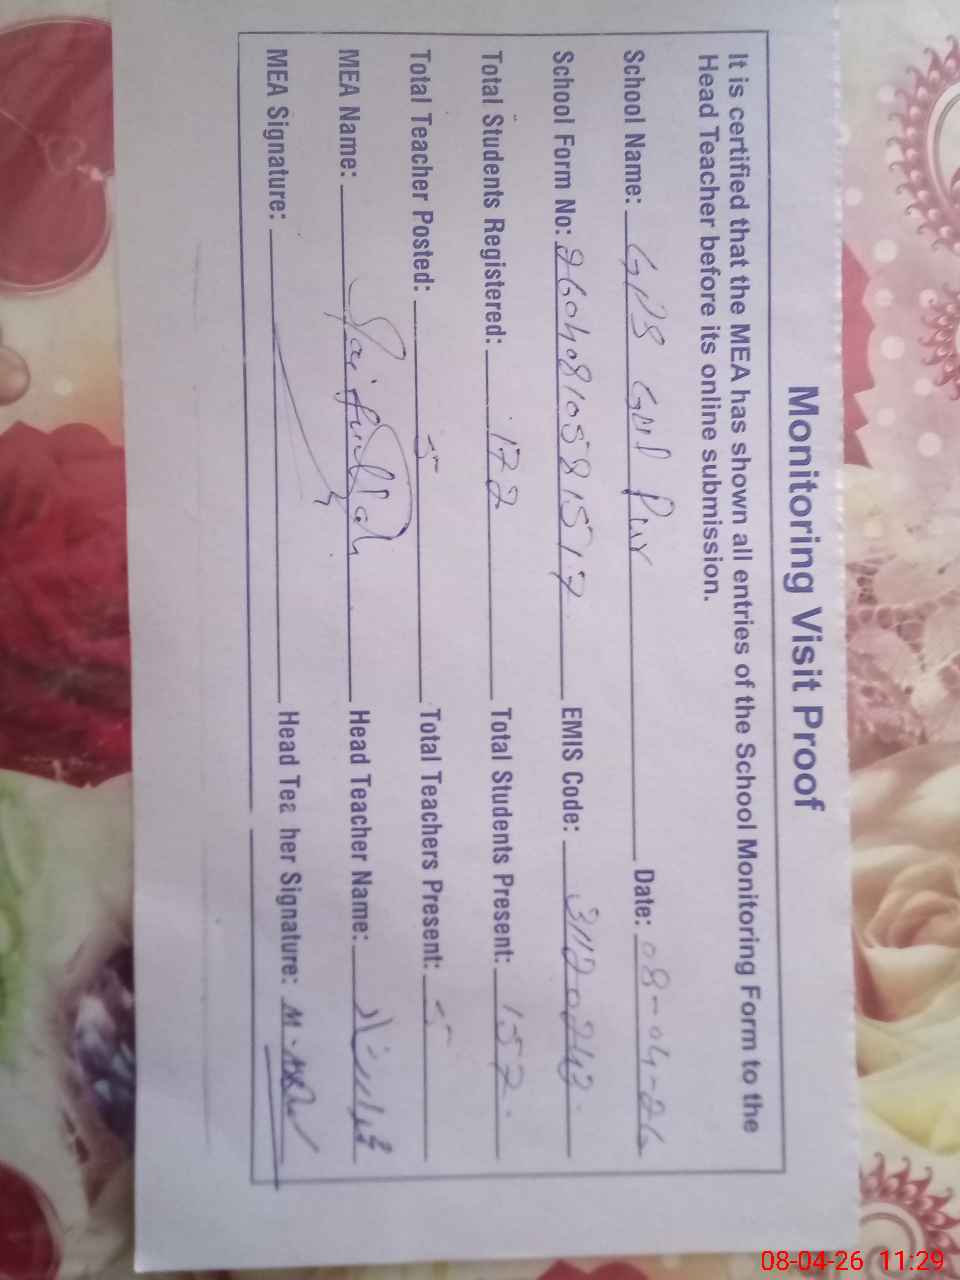 Monitoring Visit Proof
It is certified that the MEA has shown all entries of the School Monitoring Form to the
Head Teacher before its online submission.
School Name: GPS Gul Pur Date: 08-04-26
School Form No: EMIS Code:
Total Students Registered: 172 Total Students Present: 157
Total Teacher Posted: 5 Total Teachers Present: 5
MEA Name: Saifullah Head Teacher Name:
MEA Signature: Head Tea her Signature:
08-04-26 11:29